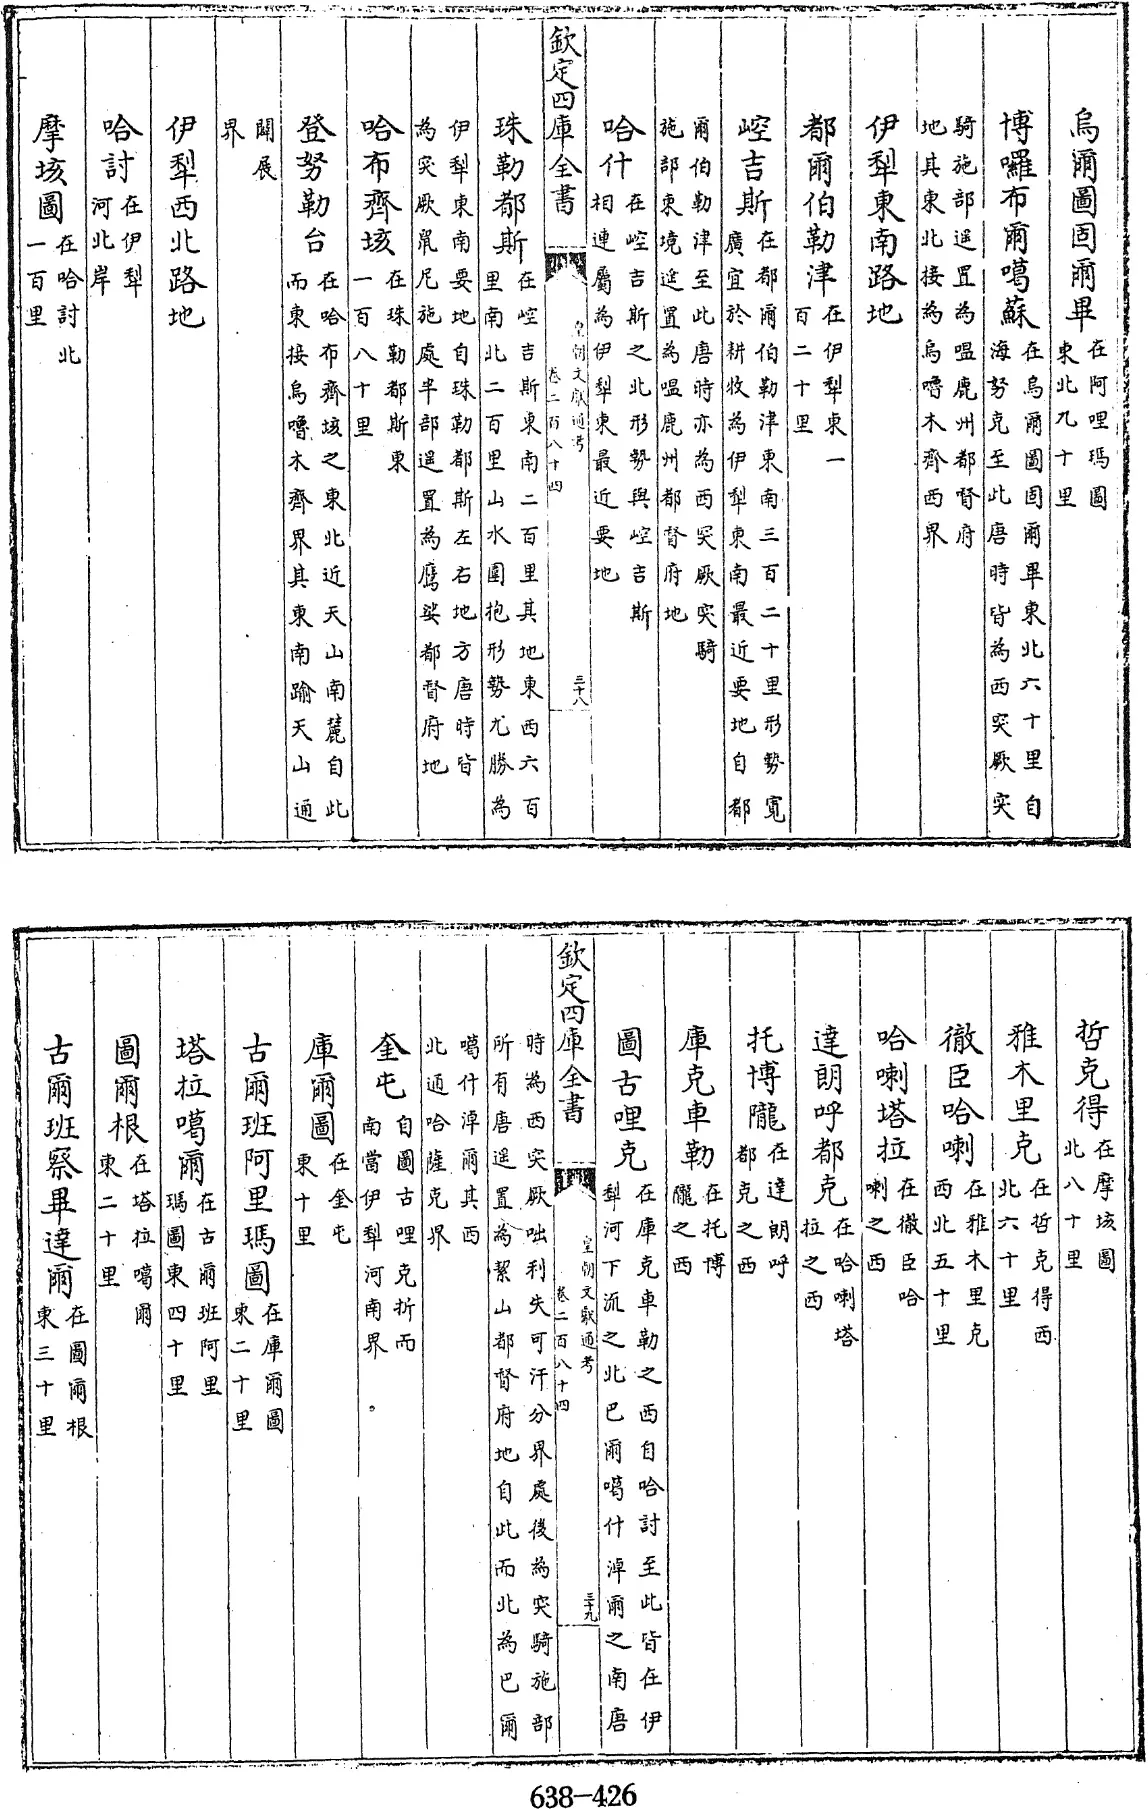 烏爾圖固爾畢在阿哩瑪圖東北九十里
博囉布爾噶蘇在烏爾圖固爾畢東北六十里自海努克至此唐時皆為西突厥突
騎施部遥置為嗢鹿州都督府地其東北接為烏嚕木齊西界
伊犁東南路地
都爾伯勒津在伊犁東一百二十里
崆吉斯在都爾伯勒津東南三百二十里形勢寛廣宜於耕牧為伊犁東南最近要地自都
爾伯勒津至此唐時亦為西突厥突騎施部東境遥置為嗢鹿州都督府地
哈什在崆吉斯之北形勢與崆吉斯相連屬為伊犁東最近要地
欽定四庫全書
皇朝文獻通考
卷二百八十四
三十八
珠勒都斯在崆吉斯東南二百里其地東西六百里南北二百里山水圍抱形勢尤勝為
伊犁東南要地自珠勒都斯左右地方唐時皆為突厥鼠尼施處半部遥置為鷹娑都督府地
哈布齊垓在珠勒都斯東一百八十里
登努勒台在哈布齊垓之東北近天山南麓自此而東接烏嚕木齊界其東南踰天山通
闢展界
伊犁西北路地
哈討在伊犁河北岸
摩垓圖在哈討北一百里
哲克得在摩垓圖北八十里
雅木里克在哲克得西北六十里
徹臣哈喇在雅木里克西北五十里
哈喇塔拉在徹臣哈喇之西
達朗呼都克在哈喇塔拉之西
托博隴在達朗呼都克之西
庫克車勒在托博隴之西
圖古哩克在庫克車勒之西自哈討至此皆在伊犁河下流之北巴爾噶什淖爾之南唐
欽定四庫全書
皇朝文獻通考
卷二百八十四
三十九
時為西突厥咄利失可汗分界處後為突騎施部所有唐遥置為絜山都督府地自此而北為巴爾
噶什淖爾其西北通哈薩克界
奎屯自圖古哩克折而南當伊犁河南界
庫爾圖在奎屯東十里
古爾班阿里瑪圖在庫爾圖東二十里
塔拉噶爾在古爾班阿里瑪圖東四十里
圖爾根在塔拉噶爾東二十里
古爾班察畢達爾在圖爾根東三十里
638-426